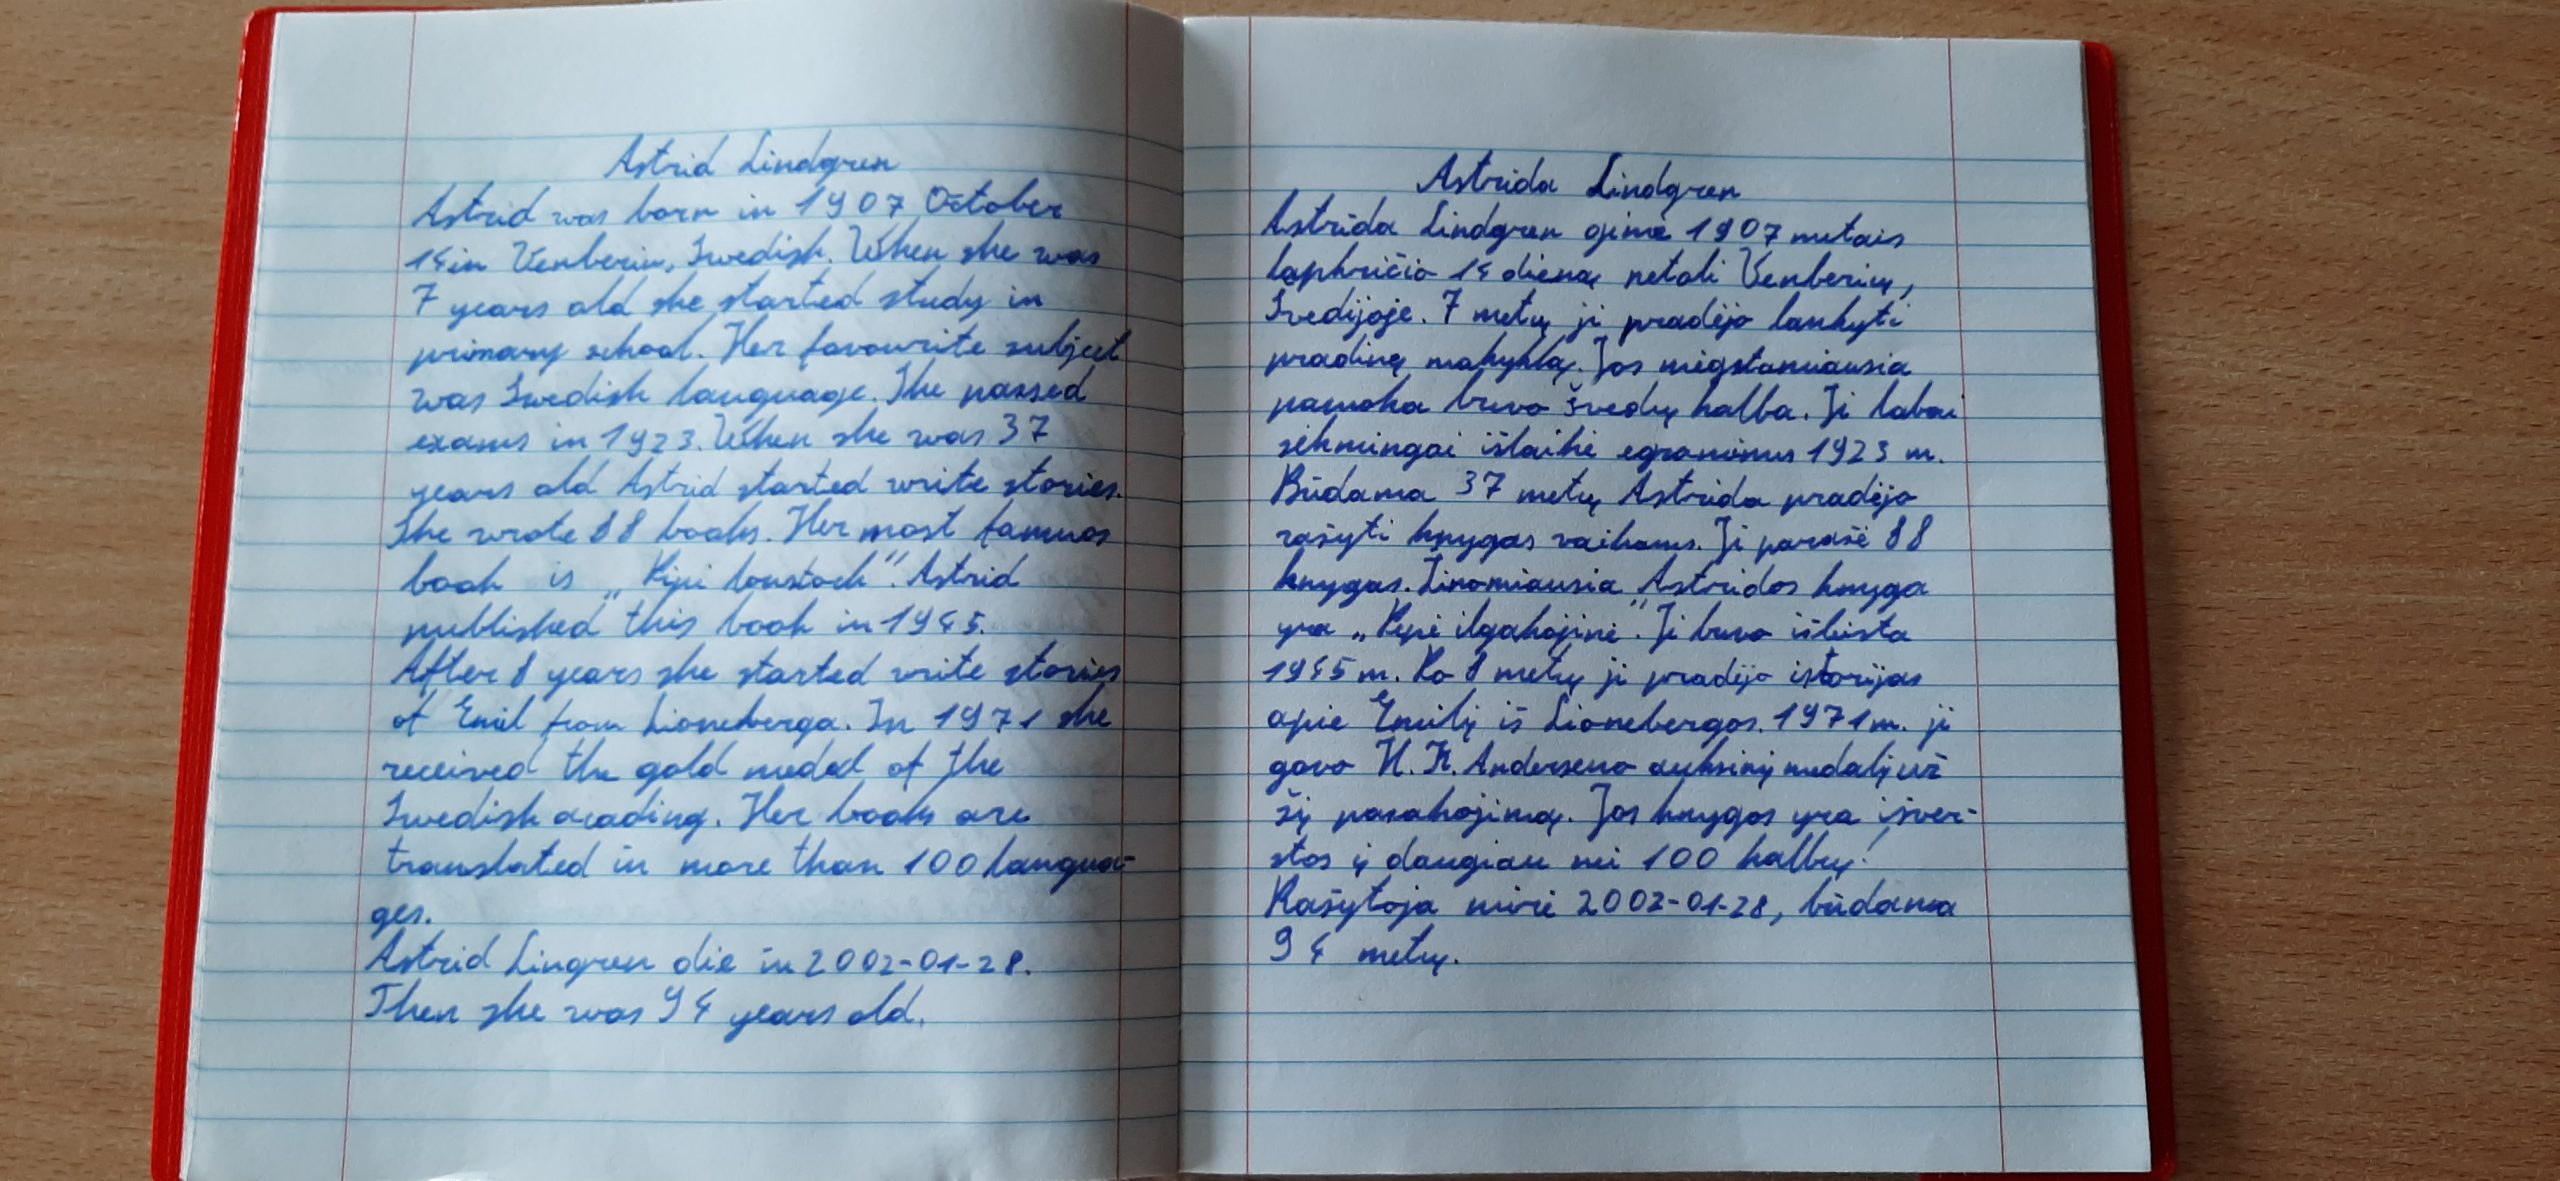 Astrid Lindgren
Astrid was born in 1907 October
14 in Venberiu, Swedish. When she was
7 years old she started study in
primary school. Her favourite subject
was Swedish language. She passed
exams in 1923. When she was 37
years old Astrid started write stories.
She wrote 88 books. Her most famuos
book is „Pipi
Astrid
published this book in 1945.
After 8 years she started write stories
of Emil from Lioneberga. In 1971 she
received the gold medal of the
Swedish acading. Her books are
translated in more than 100 langua-
ges.
Astrid Lingren die in 2002-01-28.
Then she was 94 years old.
Astrida Lindgren
Astrida Lindgren gimė 1907 metais
lapkričio 14 dieną netoli Venberių,
Švedijoje. 7 metų ji pradėjo lankyti
pradinę mokyklą. Jos mėgstamiausia
pamoka buvo švedų kalba. Ji labai
sėkmingai išlaikė egzaminus 1923 m.
Būdama 37 metų Astrida pradėjo
rašyti knygas vaikams. Ji parašė 88
knygas. Žinomiausia Astridos knyga
yra „Pepė ilgakojinė". Ji buvo išleista
1945 m. Po 8 metų ji pradėjo istorijas
apie Emilį iš Lionebergos. 1971 m. ji
gavo H. K. Anderseno auksinį medalį už
šį pasakojimą. Jos knygos yra išver-
stos į daugiau nei 100 kalbų!
Rašytoja mirė 2002-01-28, būdama
94 metų.